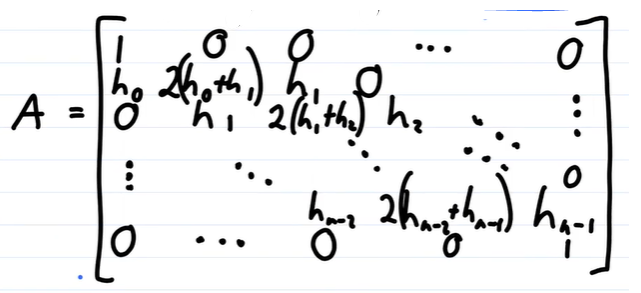 1 0 0 ⋯ 0
h₀ 2(h₀+h₁) h₁ 0 ⋮
A = 0 h₁ 2(h₁+h₂) h₂ ⋱
⋮ ⋱ ⋱ ⋱ 0
hₙ₋₂ 2(hₙ₋₂+hₙ₋₁) hₙ₋₁
0 ⋯ 0 0 1